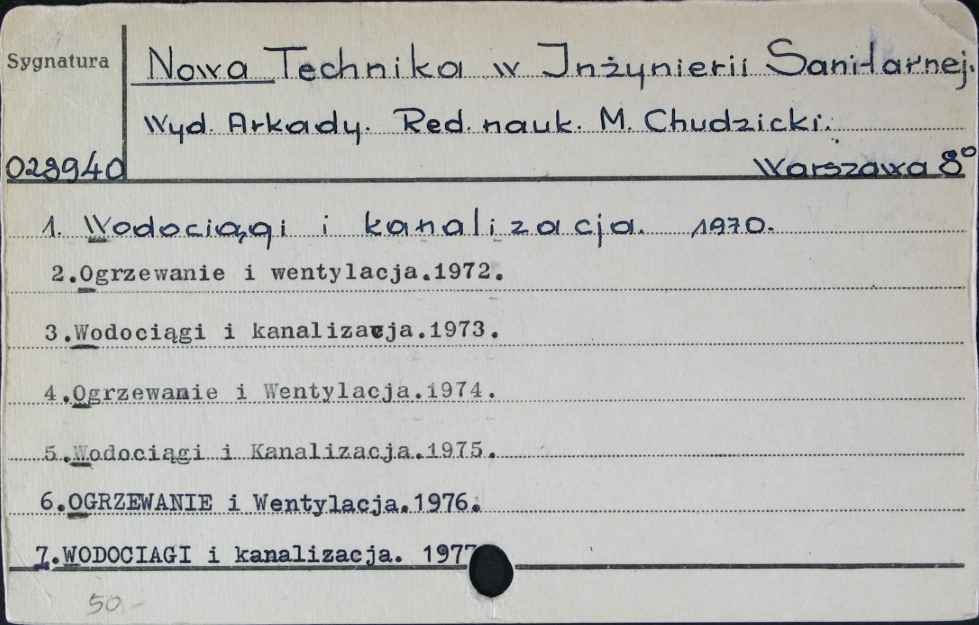 Sygnatura
Nowa Technika w Inżynierii Sanitarnej.
Wyd. Arkady. Red. nauk. M. Chudzicki.
028940
Warszawa 8°
1. Wodociągi i kanalizacja. 1970.
2.Ogrzewanie i wentylacja.1972.
3.Wodociągi i kanalizacja.1973.
4.Ogrzewanie i Wentylacja.1974.
5.Wodociągi i Kanalizacja.1975.
6.OGRZEWANIE i Wentylacja.1976.
7.WODOCIAGI i kanalizacja. 1977
50-